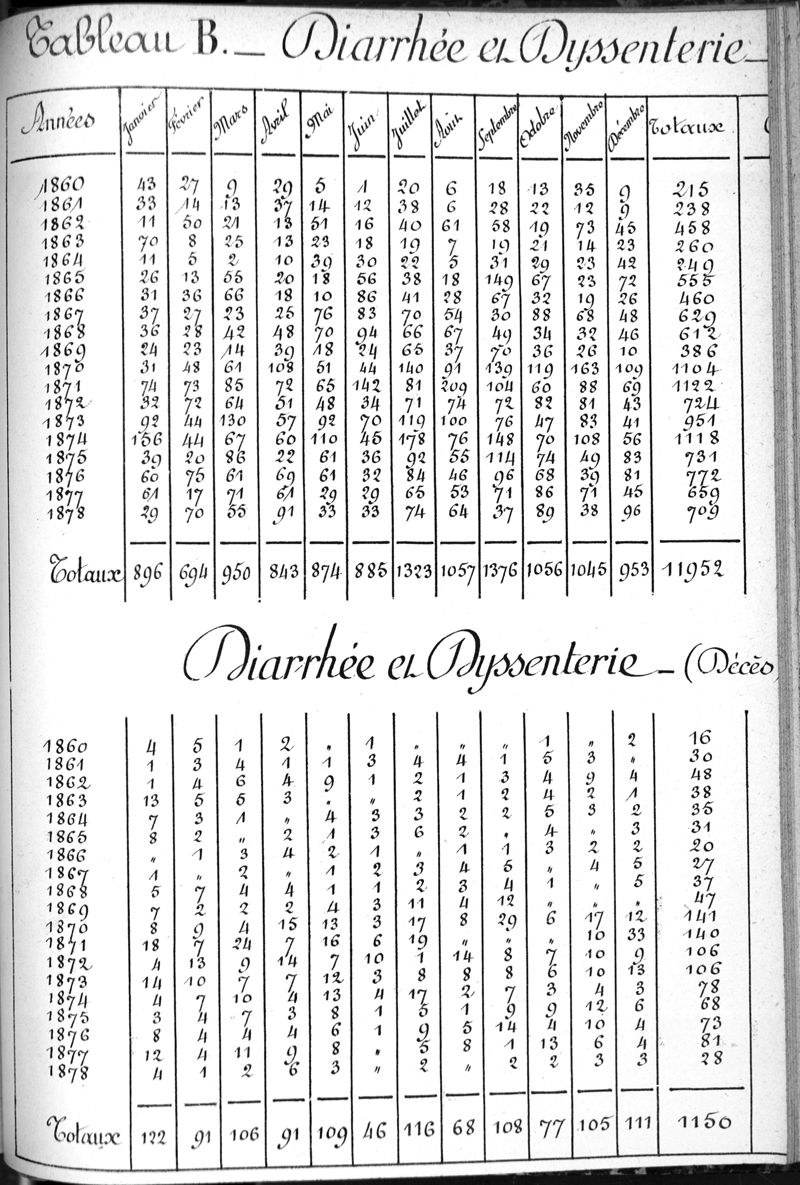 Tableau B. — Diarrhée et Dyssenterie —
Années Janvier Février Mars Avril Mai Juin Juillet Août Septembre Octobre Novembre Décembre Totaux
1860 43 27 9 29 5 1 20 6 18 13 35 9 215
1861 33 14 13 37 14 12 38 6 28 22 12 9 238
1862 11 50 21 13 51 16 40 61 58 19 73 45 458
1863 70 8 25 13 23 18 19 7 19 21 14 23 260
1864 11 5 2 10 39 30 22 5 31 29 23 42 249
1865 26 13 55 20 18 56 38 18 149 67 23 72 555
1866 31 36 66 18 10 86 41 28 67 32 19 26 460
1867 37 27 23 25 76 83 70 54 30 88 68 48 629
1868 36 28 42 48 70 94 66 67 49 34 32 46 612
1869 24 23 14 39 18 24 65 37 70 36 26 10 386
1870 31 48 61 108 51 44 140 91 139 119 163 109 1104
1871 74 73 85 72 65 142 81 209 104 60 88 69 1122
1872 32 72 64 51 48 34 71 74 72 82 81 43 724
1873 92 44 130 57 92 70 119 100 76 47 83 41 951
1874 156 44 67 60 110 45 178 76 148 70 108 56 1118
1875 39 20 86 22 61 36 92 55 114 74 49 83 731
1876 60 75 61 69 61 32 84 46 96 68 39 81 772
1877 61 17 71 61 29 29 65 53 71 86 71 45 659
1878 29 70 55 91 33 33 74 64 37 89 38 96 709
Totaux 896 694 950 843 874 885 1323 1057 1376 1056 1045 953 11952
Diarrhée et Dyssenterie — (Décès
1860 4 5 1 2 „ 1 „ „ „ 1 „ 2 16
1861 1 3 4 1 1 3 4 4 1 5 3 „ 30
1862 1 4 6 4 9 1 2 1 3 4 9 4 48
1863 13 5 5 3 „ „ 2 1 2 4 2 1 38
1864 7 3 1 „ 4 3 3 2 2 5 3 2 35
1865 8 2 „ 2 1 3 6 2 „ 4 „ 3 31
1866 „ 1 3 4 2 1 „ 1 1 3 2 2 20
1867 1 „ 2 „ 1 2 3 4 5 „ 4 5 27
1868 5 7 4 4 1 1 2 3 4 1 „ 5 37
1869 7 2 2 2 4 3 11 4 12 „ „ „ 47
1870 8 9 4 15 13 3 17 8 29 6 17 12 141
1871 18 7 24 7 16 6 19 „ „ „ 10 33 140
1872 4 13 9 14 7 10 1 14 8 7 10 9 106
1873 14 10 7 7 12 3 8 8 8 6 10 13 106
1874 4 7 10 4 13 4 17 2 7 3 4 3 78
1875 3 4 7 3 8 1 5 1 9 9 12 6 68
1876 8 4 4 4 6 1 9 5 14 4 10 4 73
1877 12 4 11 9 8 „ 5 8 1 13 6 4 81
1878 4 1 2 6 3 „ 2 „ 2 2 3 3 28
Totaux 122 91 106 91 109 46 116 68 108 77 105 111 1150